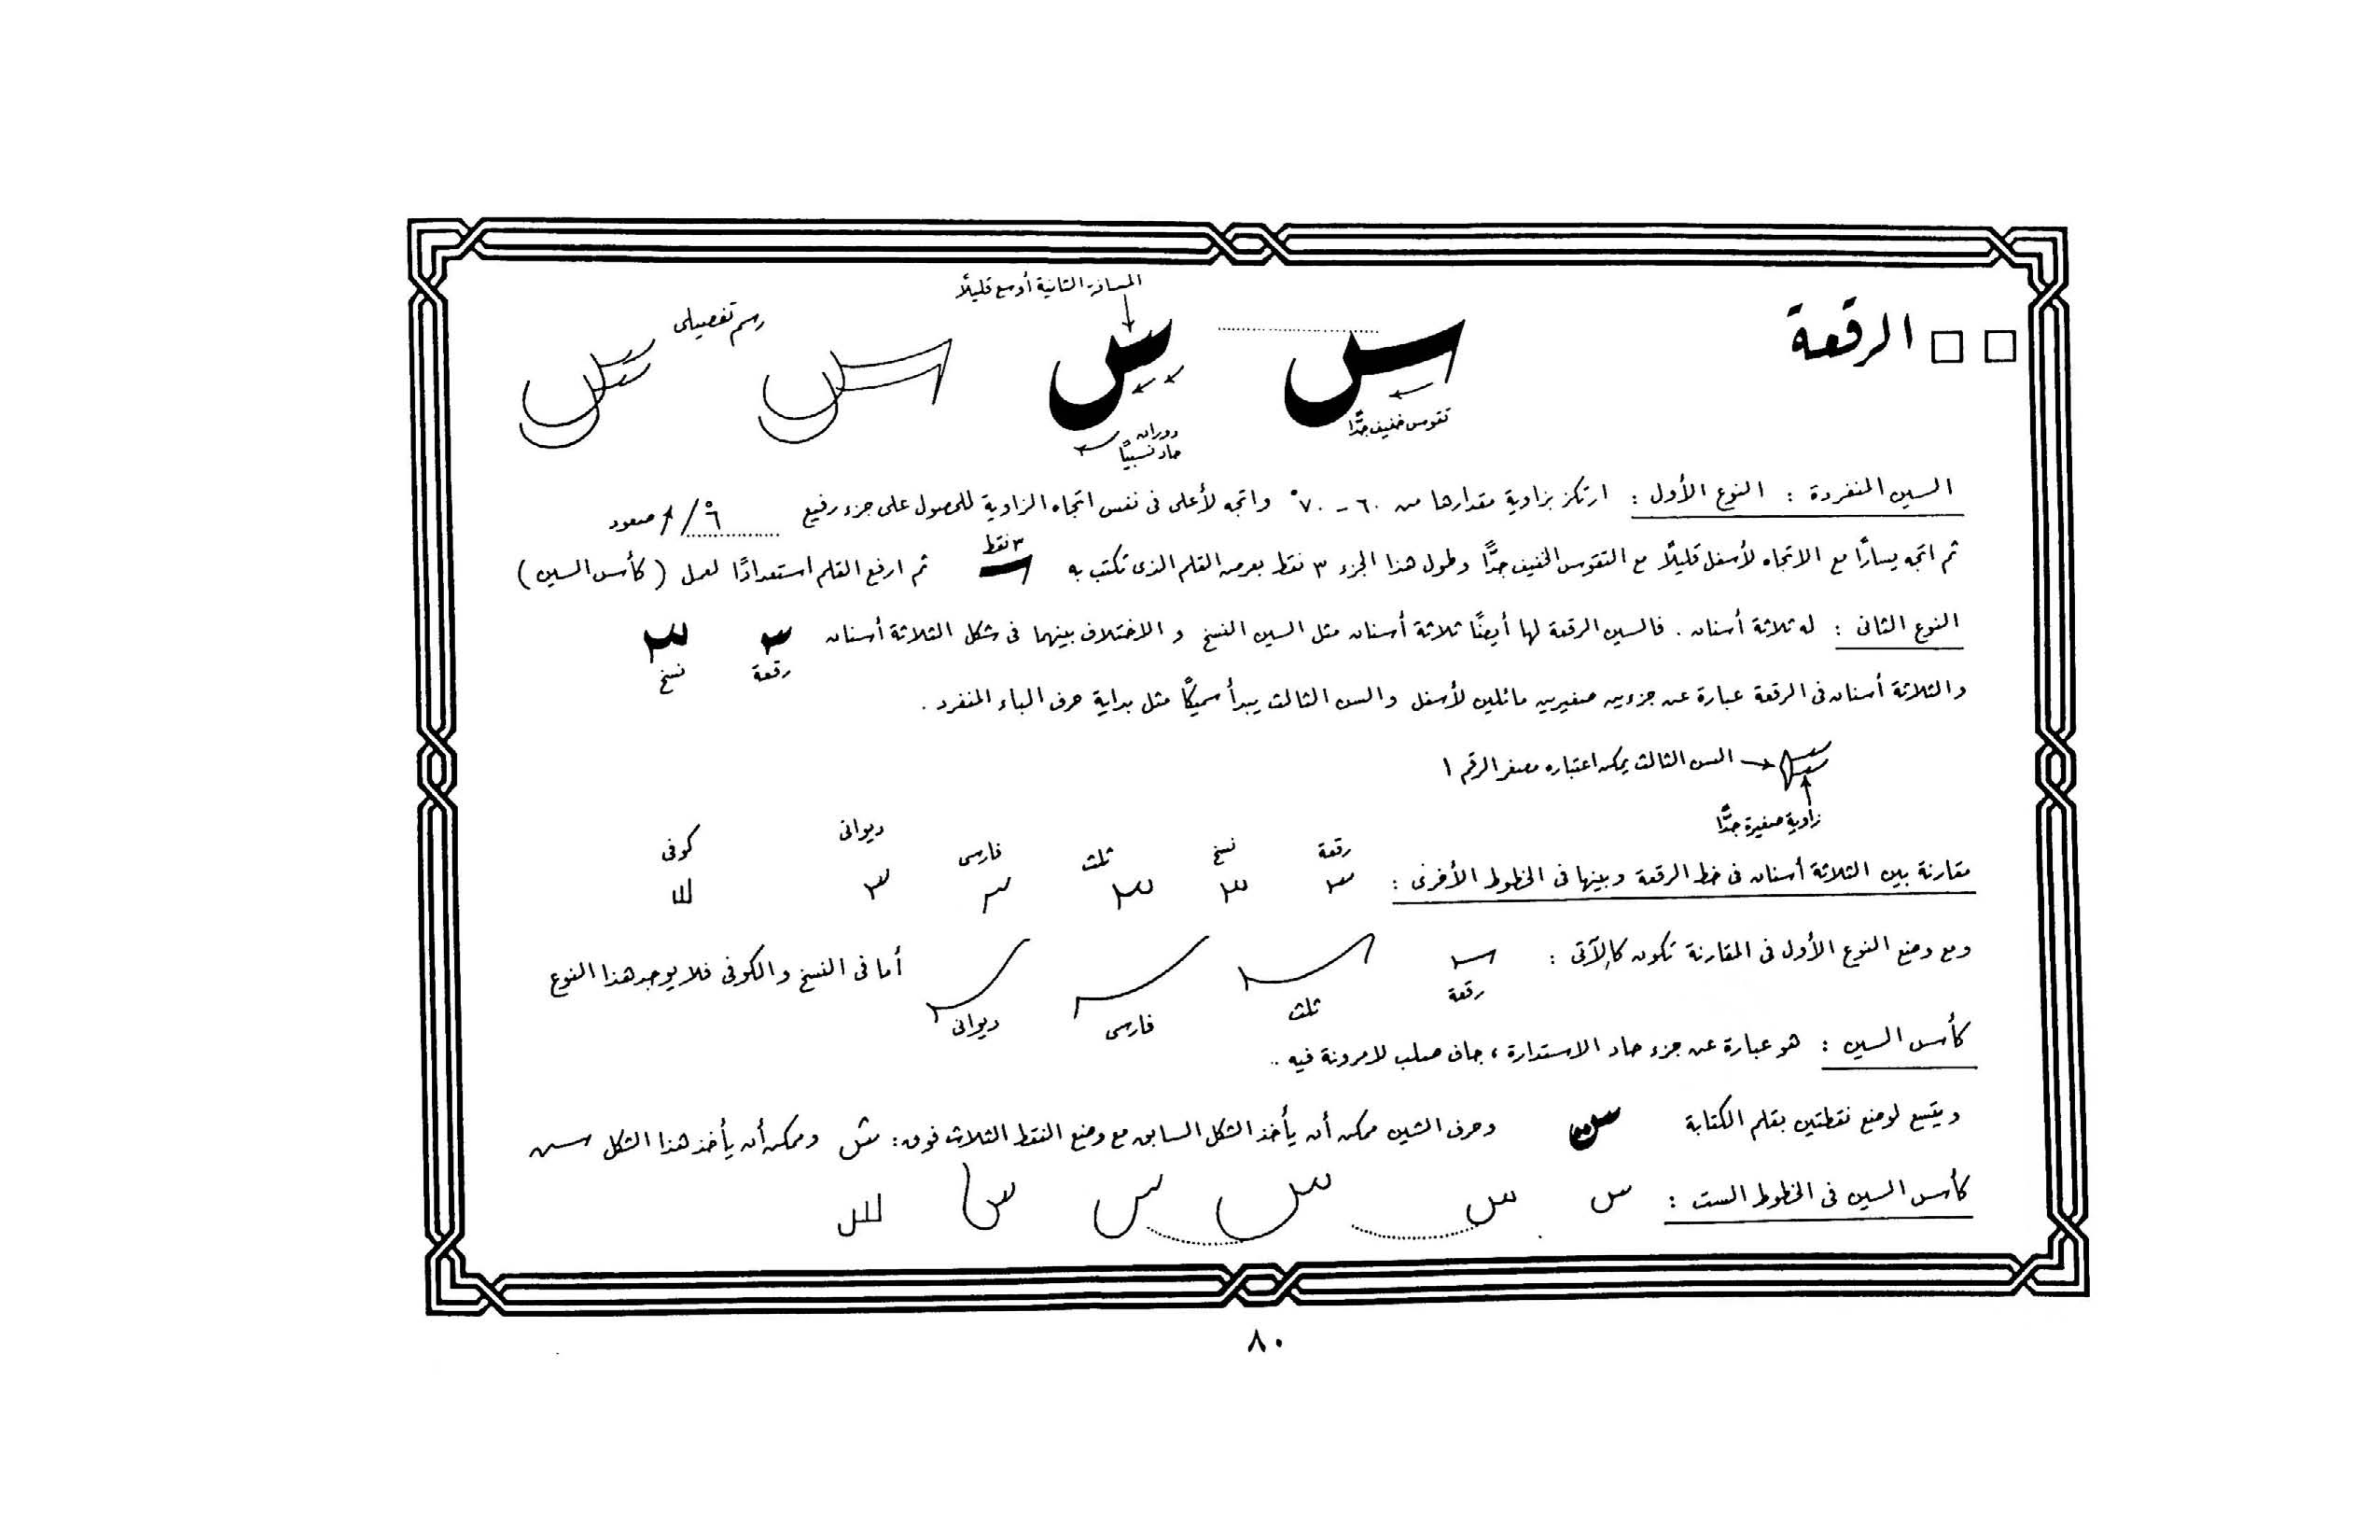 □ □ الرقعة
المسافة الثانية أوسع قليلاً
رسم تفصيلى
س س س س
تقوس خفيف جدًّا
دوران
حاد نسبيًا
السين المنفردة : النوع الأول : ارتكز بزاوية مقدارها من ٦٠ - ٧٠° واتجه لأعلى فى نفس اتجاه الزاوية للحصول على جزء رفيع ٦٠° صعود
٣ نقط
ثم اتجه يسارًا مع الاتجاه لأسفل قليلًا مع التقوس الخفيف جدًّا وطول هذا الجزء ٣ نقط بعرض القلم الذى تكتب به ثم ارفع القلم استعدادًا لعمل ( كأس السين )
النوع الثانى : له ثلاثة أسنان . فالسين الرقعة لها أيضًا ثلاثة أسنان مثل السين النسخ والاختلاف بينهما فى شكل الثلاثة أسنان
رقعة نسخ
والثلاثة أسنان فى الرقعة عبارة عن جزءين صغيرين مائلين لأسفل والسن الثالث يبدأ سميكًا مثل بداية حرف الباء المنفرد .
السن الثالث يمكن اعتباره مصغر الرقم ١
زاوية صغيرة جدًّا
رقعة نسخ ثلث فارسى ديوانى كوفى
مقارنة بين الثلاثة أسنان فى خط الرقعة وبينها فى الخطوط الأخرى :
ومع وضع النوع الأول فى المقارنة تكون كالآتى : أما فى النسخ والكوفى فلا يوجد هذا النوع
رقعة ثلث فارسى ديوانى
كأس السين : هو عبارة عن جزء حاد الاستدارة ، جاف صلب لا مرونة فيه ..
ويتسع لوضع نقطتين بقلم الكتابة س وحرف الشين ممكن أن يأخذ الشكل السابق مع وضع النقط الثلاث فوق : ش وممكن أن يأخذ هذا الشكل
كأس السين فى الخطوط الست : س س س س س س
٨٠